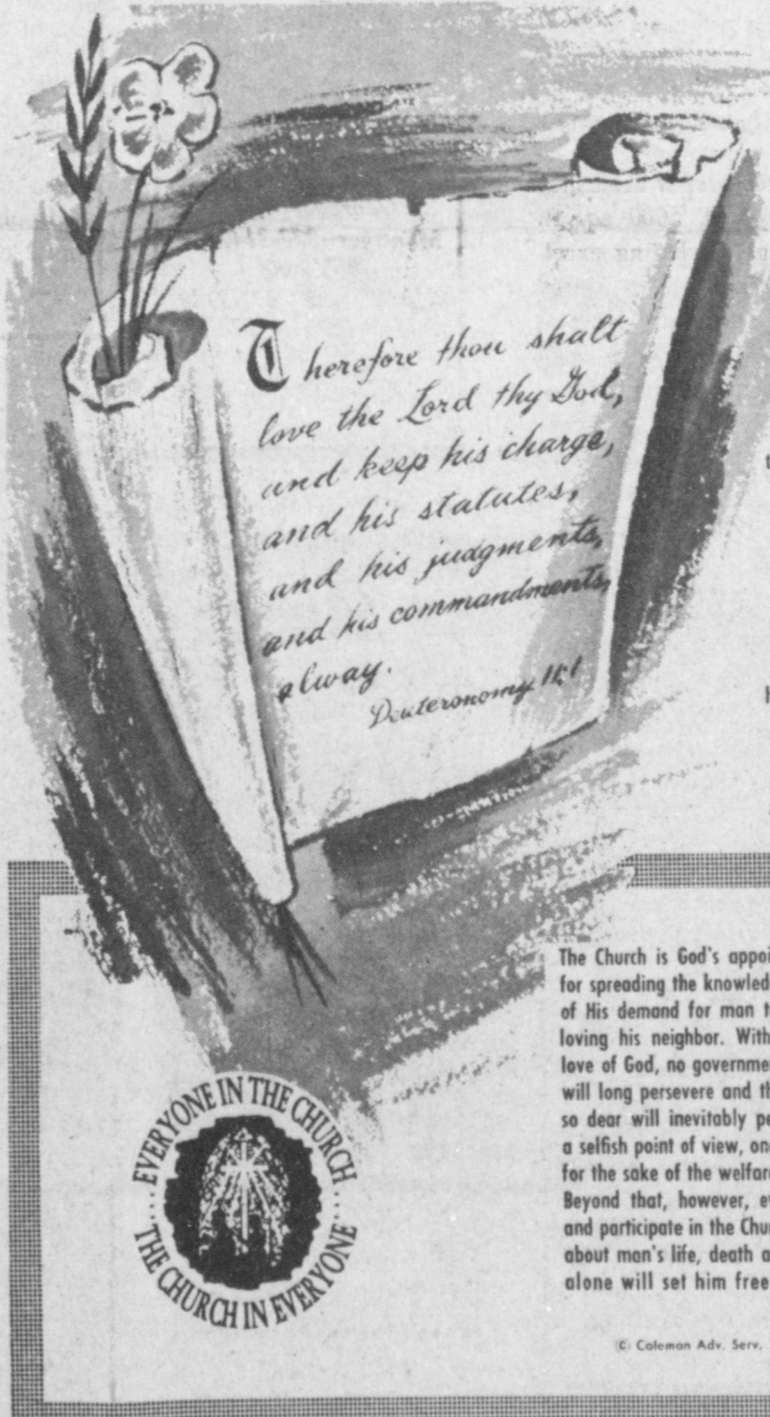 Therefore thou shalt
love the Lord thy God,
and keep his charge,
and his statutes,
and his judgments,
and his commandments,
alway.
Deuteronomy 11:1
The Church is God's appoi
for spreading the knowled
of His demand for man t
loving his neighbor. With
love of God, no governme
will long persevere and th
so dear will inevitably pe
a selfish point of view, on
for the sake of the welfar
Beyond that, however, ev
and participate in the Chu
about man's life, death a
alone will set him free
EVERYONE IN THE CHURCH
THE CHURCH IN EVERYONE
© Coleman Adv. Serv.